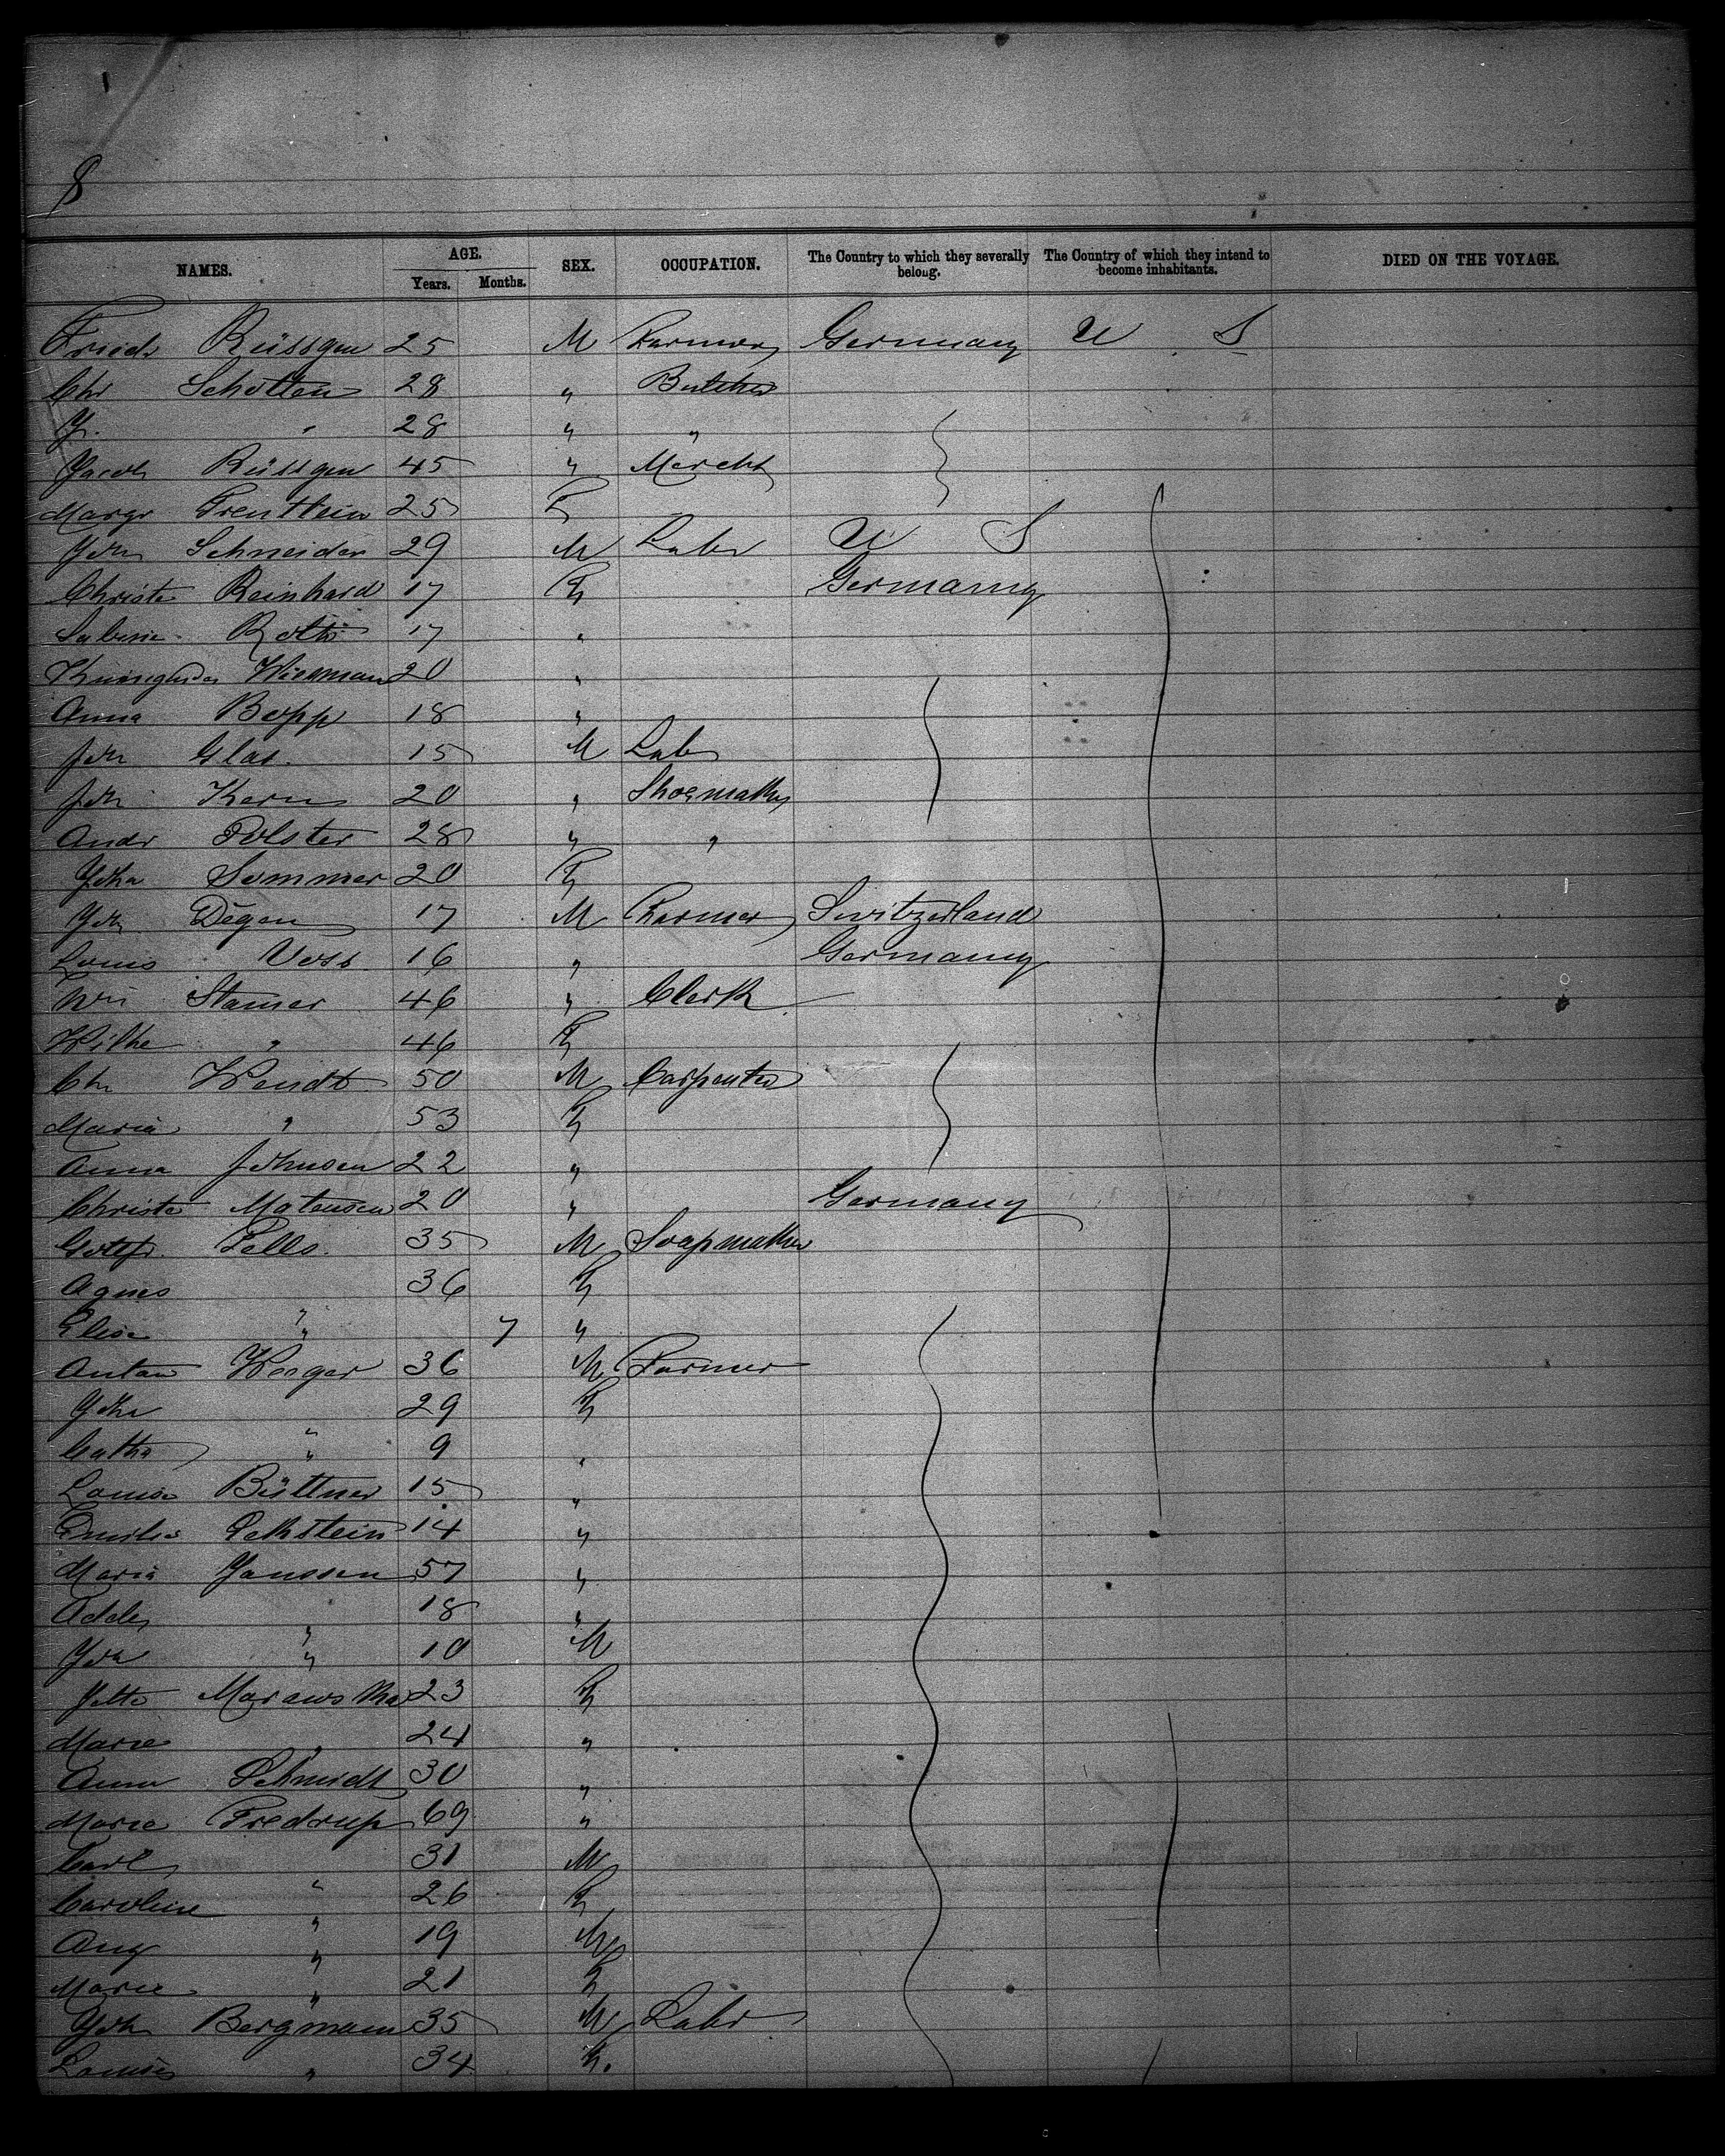 8
NAMES. AGE. SEX. OCCUPATION. The Country to which they severally belong. The Country of which they intend to become inhabitants. DIED ON THE VOYAGE.
Years. Months.
Friedr Rüssgen 25 M Farmer Germany U S
Chr Scholten 28 " Butcher
J. " 28 " "
Jacob Rüssgen 45 " Mercht
Margr 25 F
Joh Schneider 29 M Labr U S
Christe Reinhard 17 F Germany
Sabine Roth 17 "
Kunigunda 20 "
Anna Bopp 18 "
Joh Glas. 15 M Labr
Joh Kern 20 " Shoemaker
Andr Polster 28 " "
Joha Sommer 20 F
Joh Degen 17 M Farmer Switzerland
Louis Voss 16 " Germany
Wm Stamer 46 " Clerk
Wilhe " 46 F
Chr Wendt 50 M Carpenter
Maria " 53 F
Anna Johnsen 22 "
Christe Matensen 20 " Germany
Gottfr. Pells. 35 M Soapmaker
Agnes " 36 F
Elise " 7 "
Anton Weeger 36 M Farmer
Joha " 29 F
Catha " 9 "
Louise Büttner 15 "
Emilie 14 "
Maria Janssen 57 "
Adele " 18 "
Joh " 10 M
Jette Marawska 23 F
Marie " 24 "
Anna Schmidt 30 "
Marie Fredrup 69 "
Carl " 31 M
Caroline " 26 F
Aug " 19 M
Marie " 21 F
Joh Bergmann 35 M Labr
Louise " 34 F.